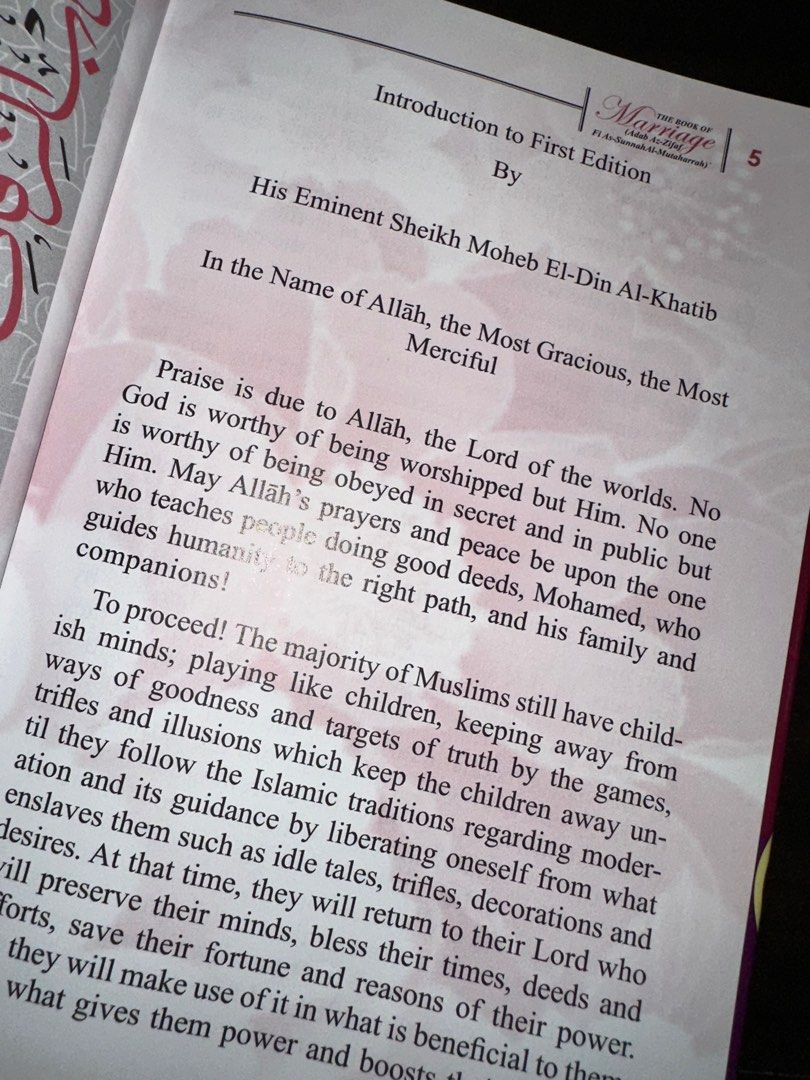 THE BOOK OF
Marriage
(Adab Az-Zifaf
Fi As-Sunnah Al-Mutaharrah)
5
Introduction to First Edition
By
His Eminent Sheikh Moheb El-Din Al-Khatib
In the Name of Allāh, the Most Gracious, the Most
Merciful
Praise is due to Allāh, the Lord of the worlds. No
God is worthy of being worshipped but Him. No one
is worthy of being obeyed in secret and in public but
Him. May Allāh's prayers and peace be upon the one
who teaches people doing good deeds, Mohamed, who
guides humanity to the right path, and his family and
companions!
To proceed! The majority of Muslims still have child-
ish minds; playing like children, keeping away from
ways of goodness and targets of truth by the games,
trifles and illusions which keep the children away un-
til they follow the Islamic traditions regarding moder-
ation and its guidance by liberating oneself from what
enslaves them such as idle tales, trifles, decorations and
desires. At that time, they will return to their Lord who
will preserve their minds, bless their times, deeds and
fforts, save their fortune and reasons of their power.
they will make use of it in what is beneficial to them
what gives them power and boosts